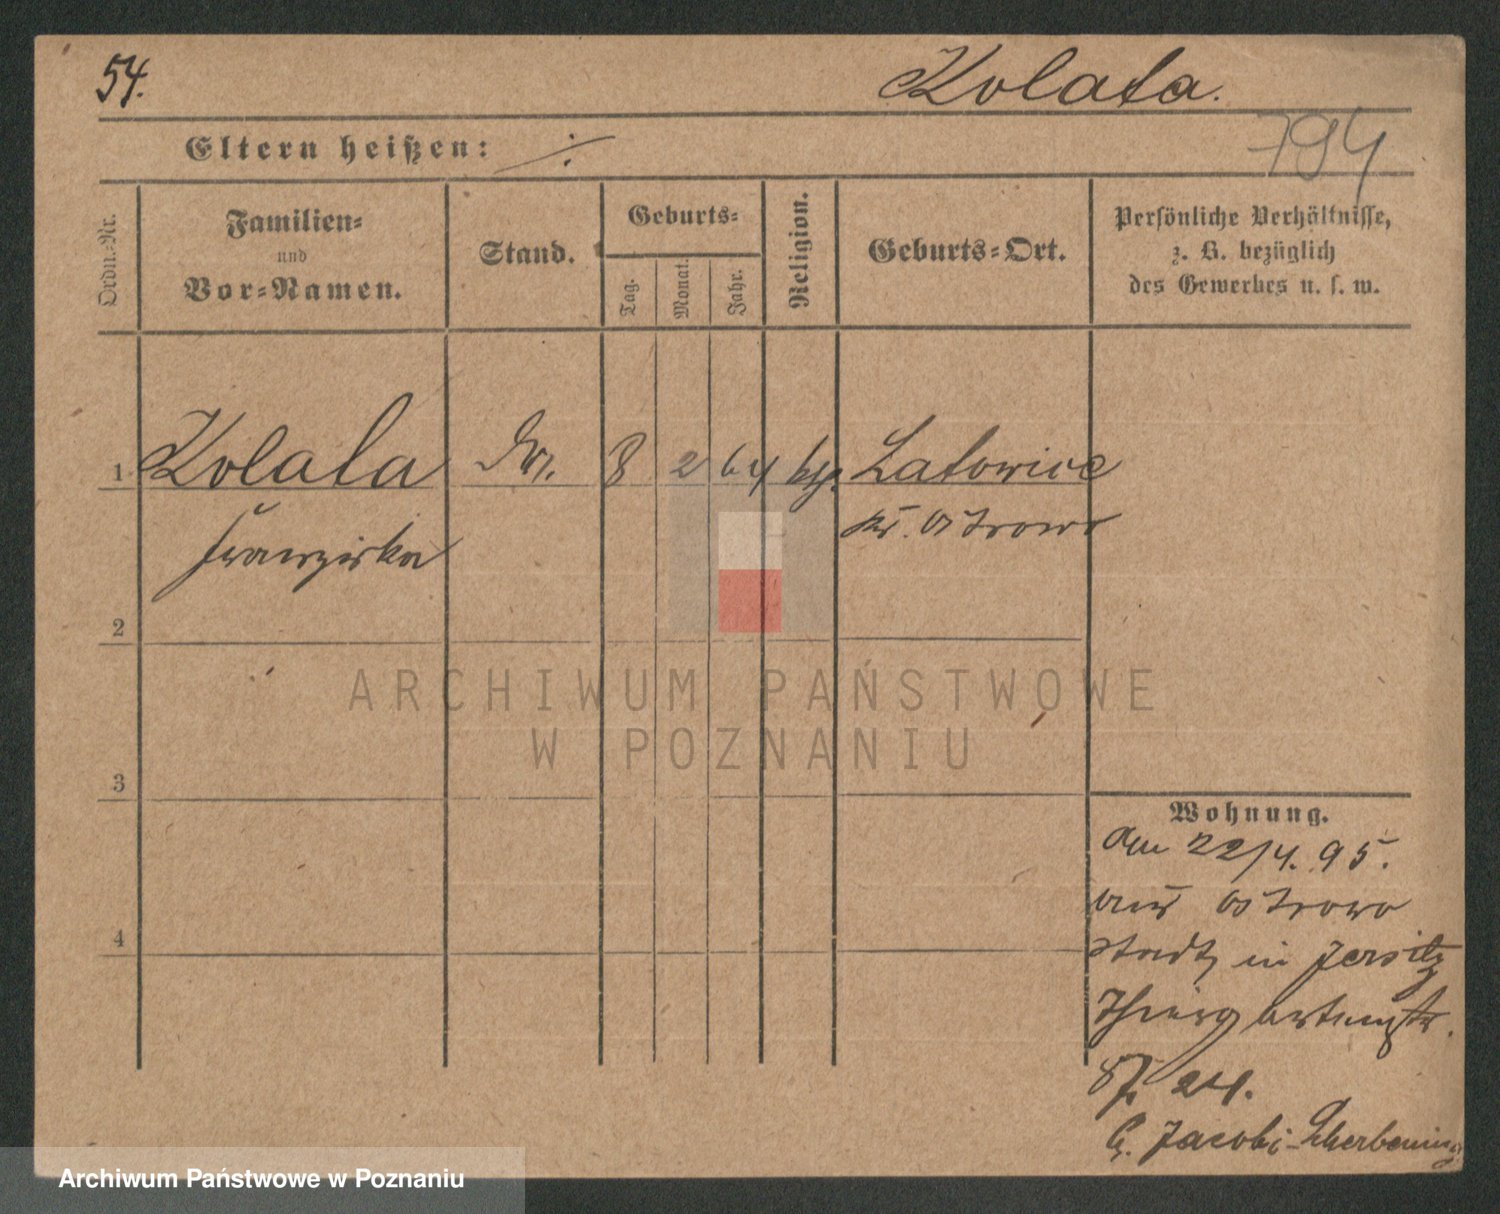 54.
Kolata.
794
Eltern heißen: ./.
Ordn.-Nr.
Familien-
und
Vor-Namen.
Stand.
Geburts-
Tag.
Monat.
Jahr.
Religion.
Geburts-Ort.
Persönliche Verhältnisse,
z. B. bezüglich
des Gewerbes u. s. w.
1 Kolata 8 2 64 kth. Latowice
Franziska Kr. Ostrowo
2
3
4
ARCHIWUM PAŃSTWOWE
W POZNANIU
Wohnung.
Am 22/4. 95.
aus Ostrowo
Stadt in Jersitz
Thiergartenstr.
24.
Jacobi-Scherbening
Archiwum Państwowe w Poznaniu